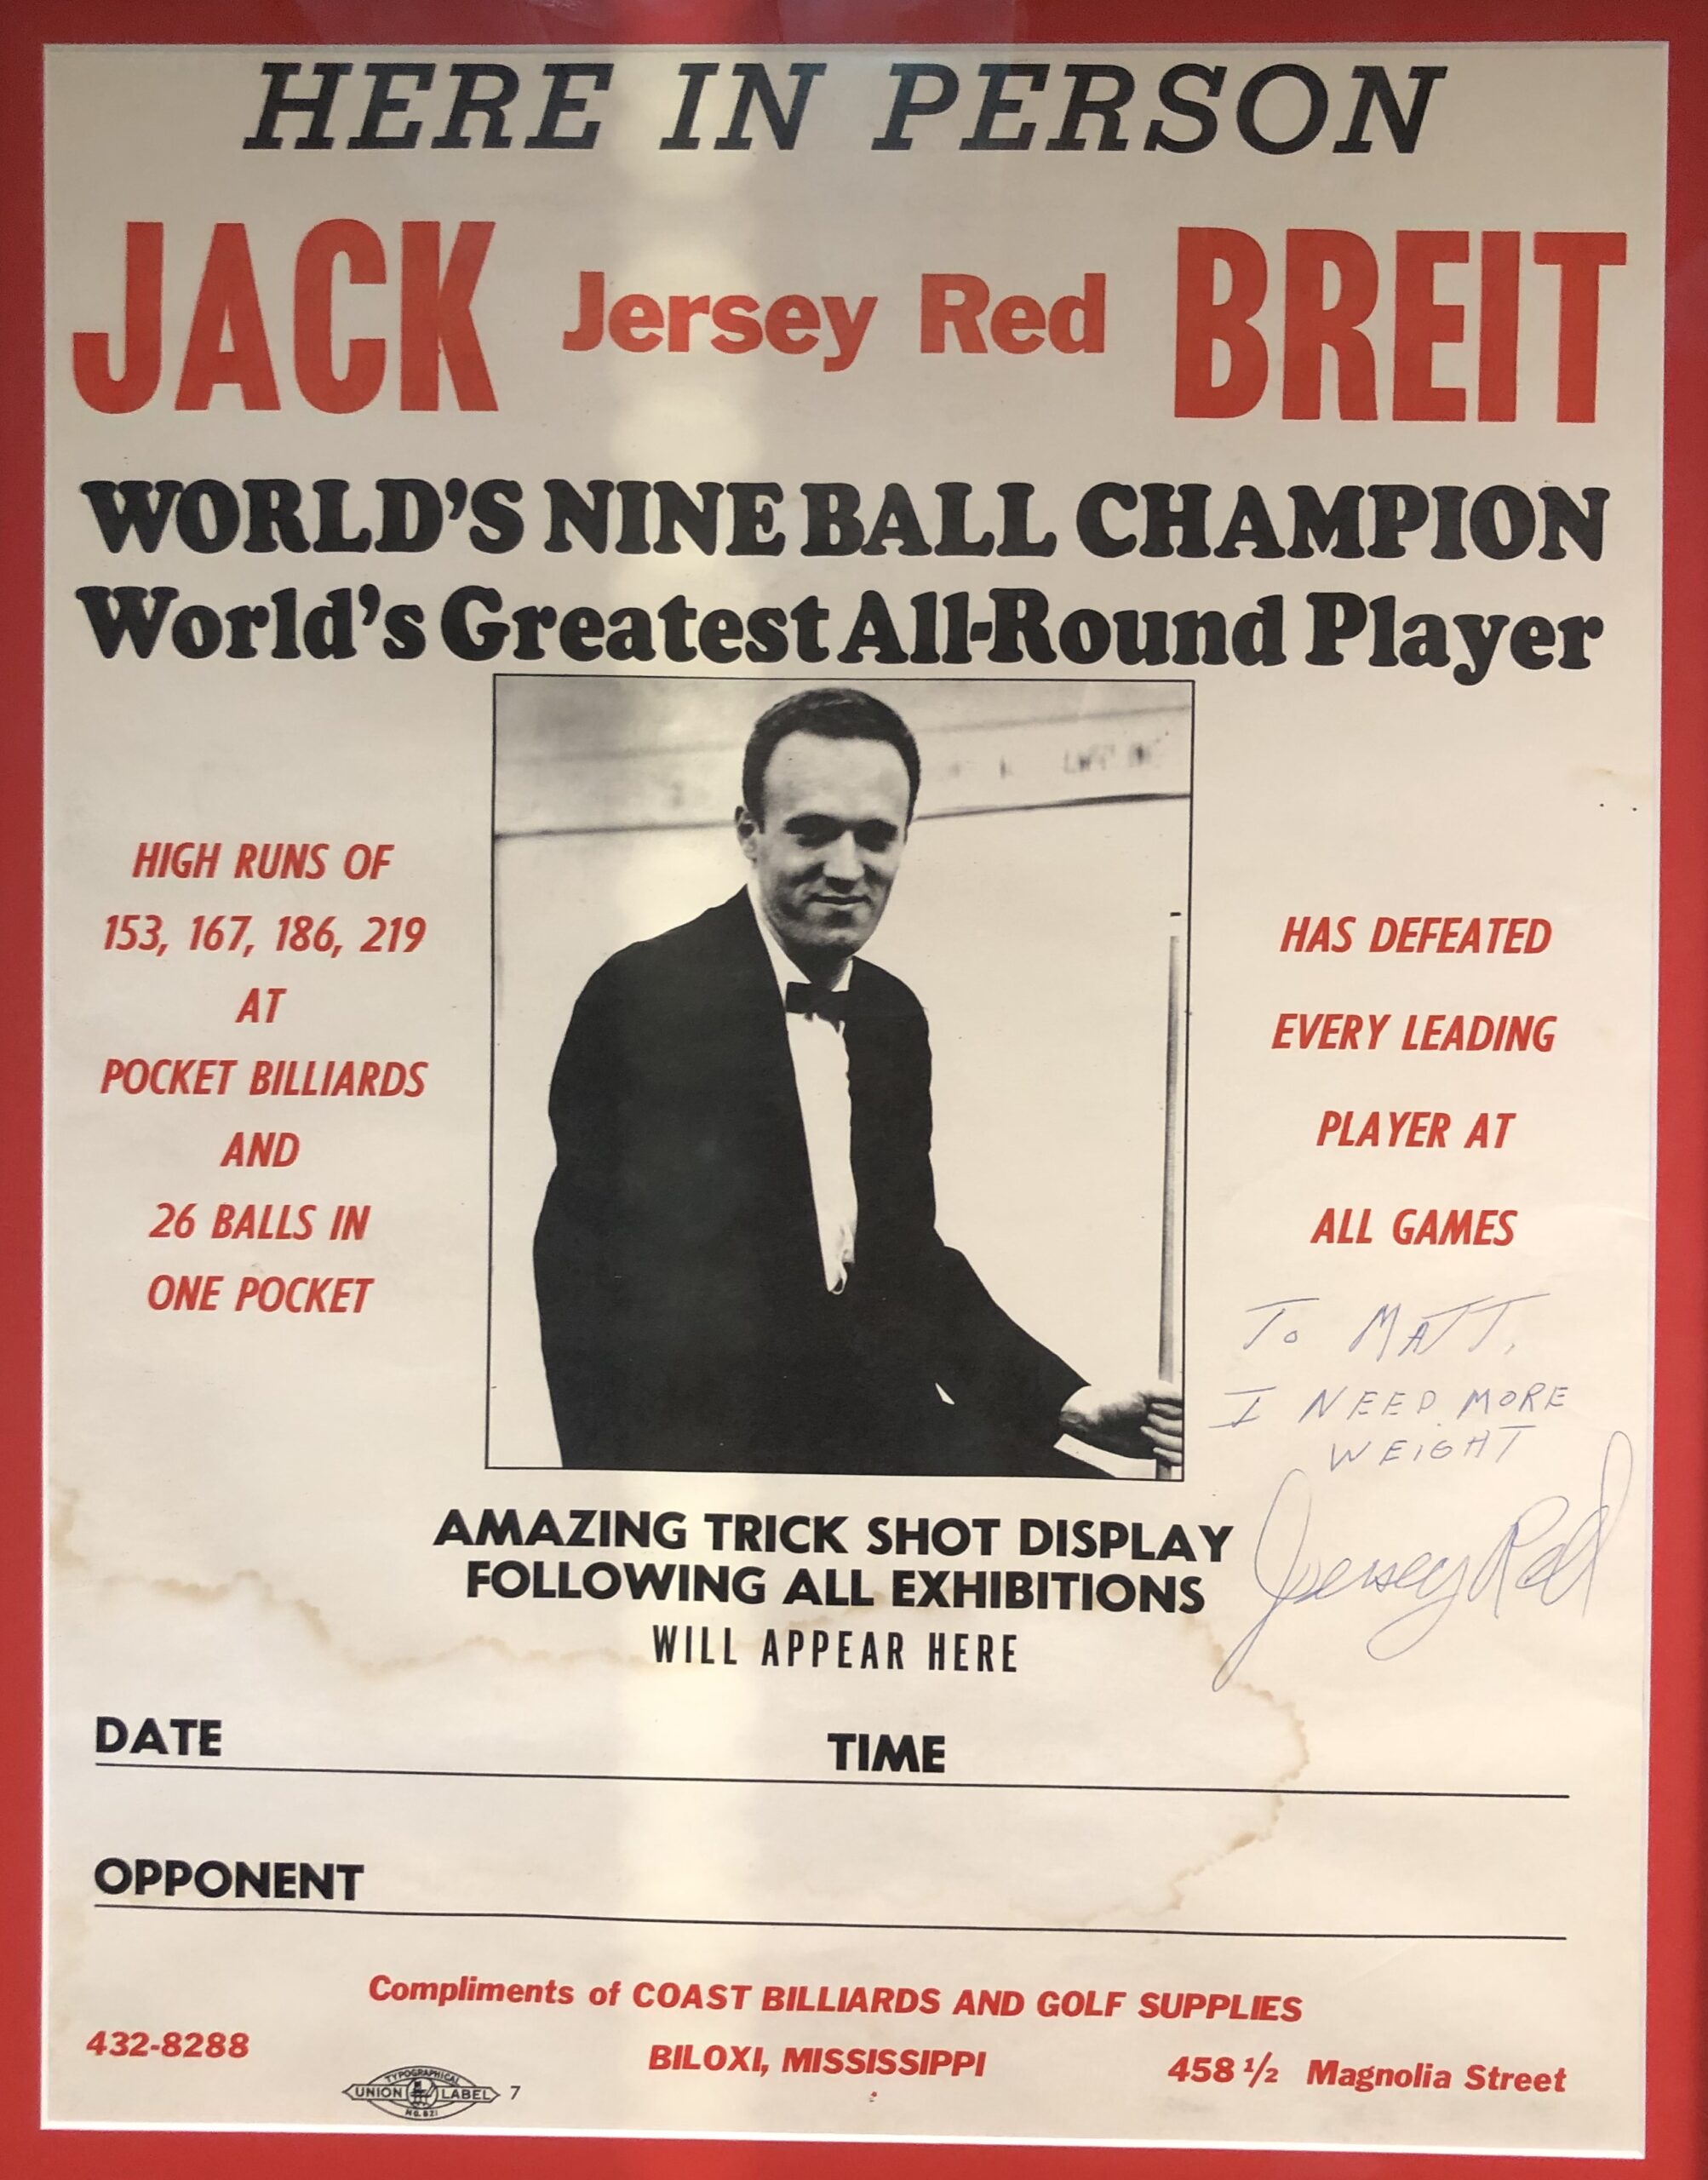 HERE IN PERSON
JACK Jersey Red BREIT
WORLD'S NINE BALL CHAMPION
World's Greatest All-Round Player
HIGH RUNS OF
153, 167, 186, 219
AT
POCKET BILLIARDS
AND
26 BALLS IN
ONE POCKET
HAS DEFEATED
EVERY LEADING
PLAYER AT
ALL GAMES
TO MATT,
I NEED MORE
WEIGHT
Jersey Red
AMAZING TRICK SHOT DISPLAY
FOLLOWING ALL EXHIBITIONS
WILL APPEAR HERE
DATE TIME
OPPONENT
Compliments of COAST BILLIARDS AND GOLF SUPPLIES
432-8288 BILOXI, MISSISSIPPI 458 1/2 Magnolia Street
TYPOGRAPHICAL
UNION LABEL 7
NO. 821